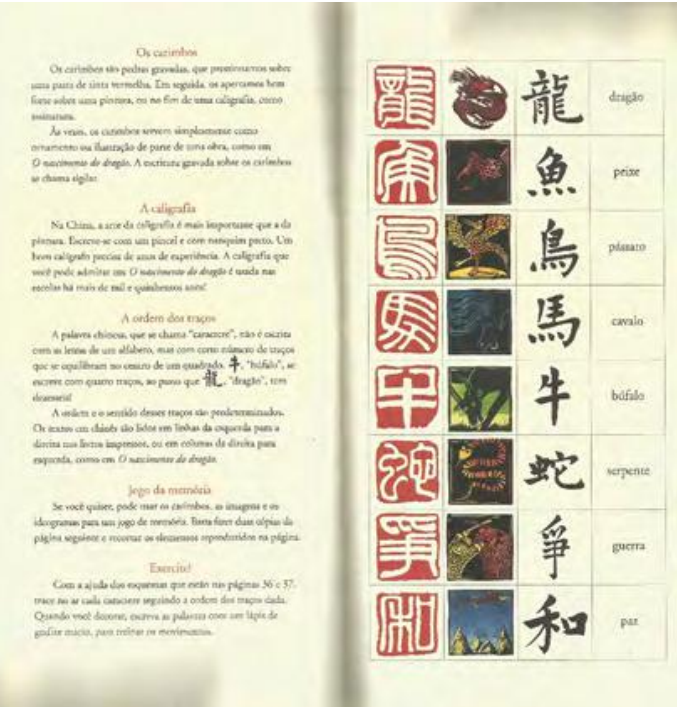 Os carimbos
Os carimbos são pedras gravadas, que pressionamos sobre
uma pasta de tinta vermelha. Em seguida, os apertamos bem
forte sobre uma pintura, ou no fim de uma caligrafia, como
assinatura.
Às vezes, os carimbos servem simplesmente como
ornamento ou ilustração de parte de uma obra, como em
O nascimento do dragão. A escritura gravada sobre os carimbos
se chama sigilar.
A caligrafia
Na China, a arte da caligrafia é mais importante que a da
pintura. Escreve-se com um pincel e com nanquim preto. Um
bom calígrafo precisa de anos de experiência. A caligrafia que
você pode admirar em O nascimento do dragão é usada nas
escolas há mais de mil e quinhentos anos!
A ordem dos traços
A palavra chinesa, que se chama "caractere", não é escrita
com as letras de um alfabeto, mas com certo número de traços
que se equilibram no centro de um quadrado. 牛, "búfalo", se
escreve com quatro traços, ao passo que 龍, "dragão", tem
dezesseis!
A ordem e o sentido desses traços são predeterminados.
Os textos em chinês são lidos em linhas da esquerda para a
direita nos livros impressos, ou em colunas da direita para
esquerda, como em O nascimento do dragão.
Jogo da memória
Se você quiser, pode usar os carimbos, as imagens e os
ideogramas para um jogo de memória. Basta fazer duas cópias da
página seguinte e recortar os elementos reproduzidos na página.
Exercite!
Com a ajuda dos esquemas que estão nas páginas 36 e 37,
trace no ar cada caractere seguindo a ordem dos traços dada.
Quando você decorar, escreva as palavras com um lápis de
grafite macio, para treinar os movimentos.
龍 龍 dragão
魚 魚 peixe
鳥 鳥 pássaro
馬 馬 cavalo
牛 牛 búfalo
蛇 蛇 serpente
爭 爭 guerra
和 和 paz